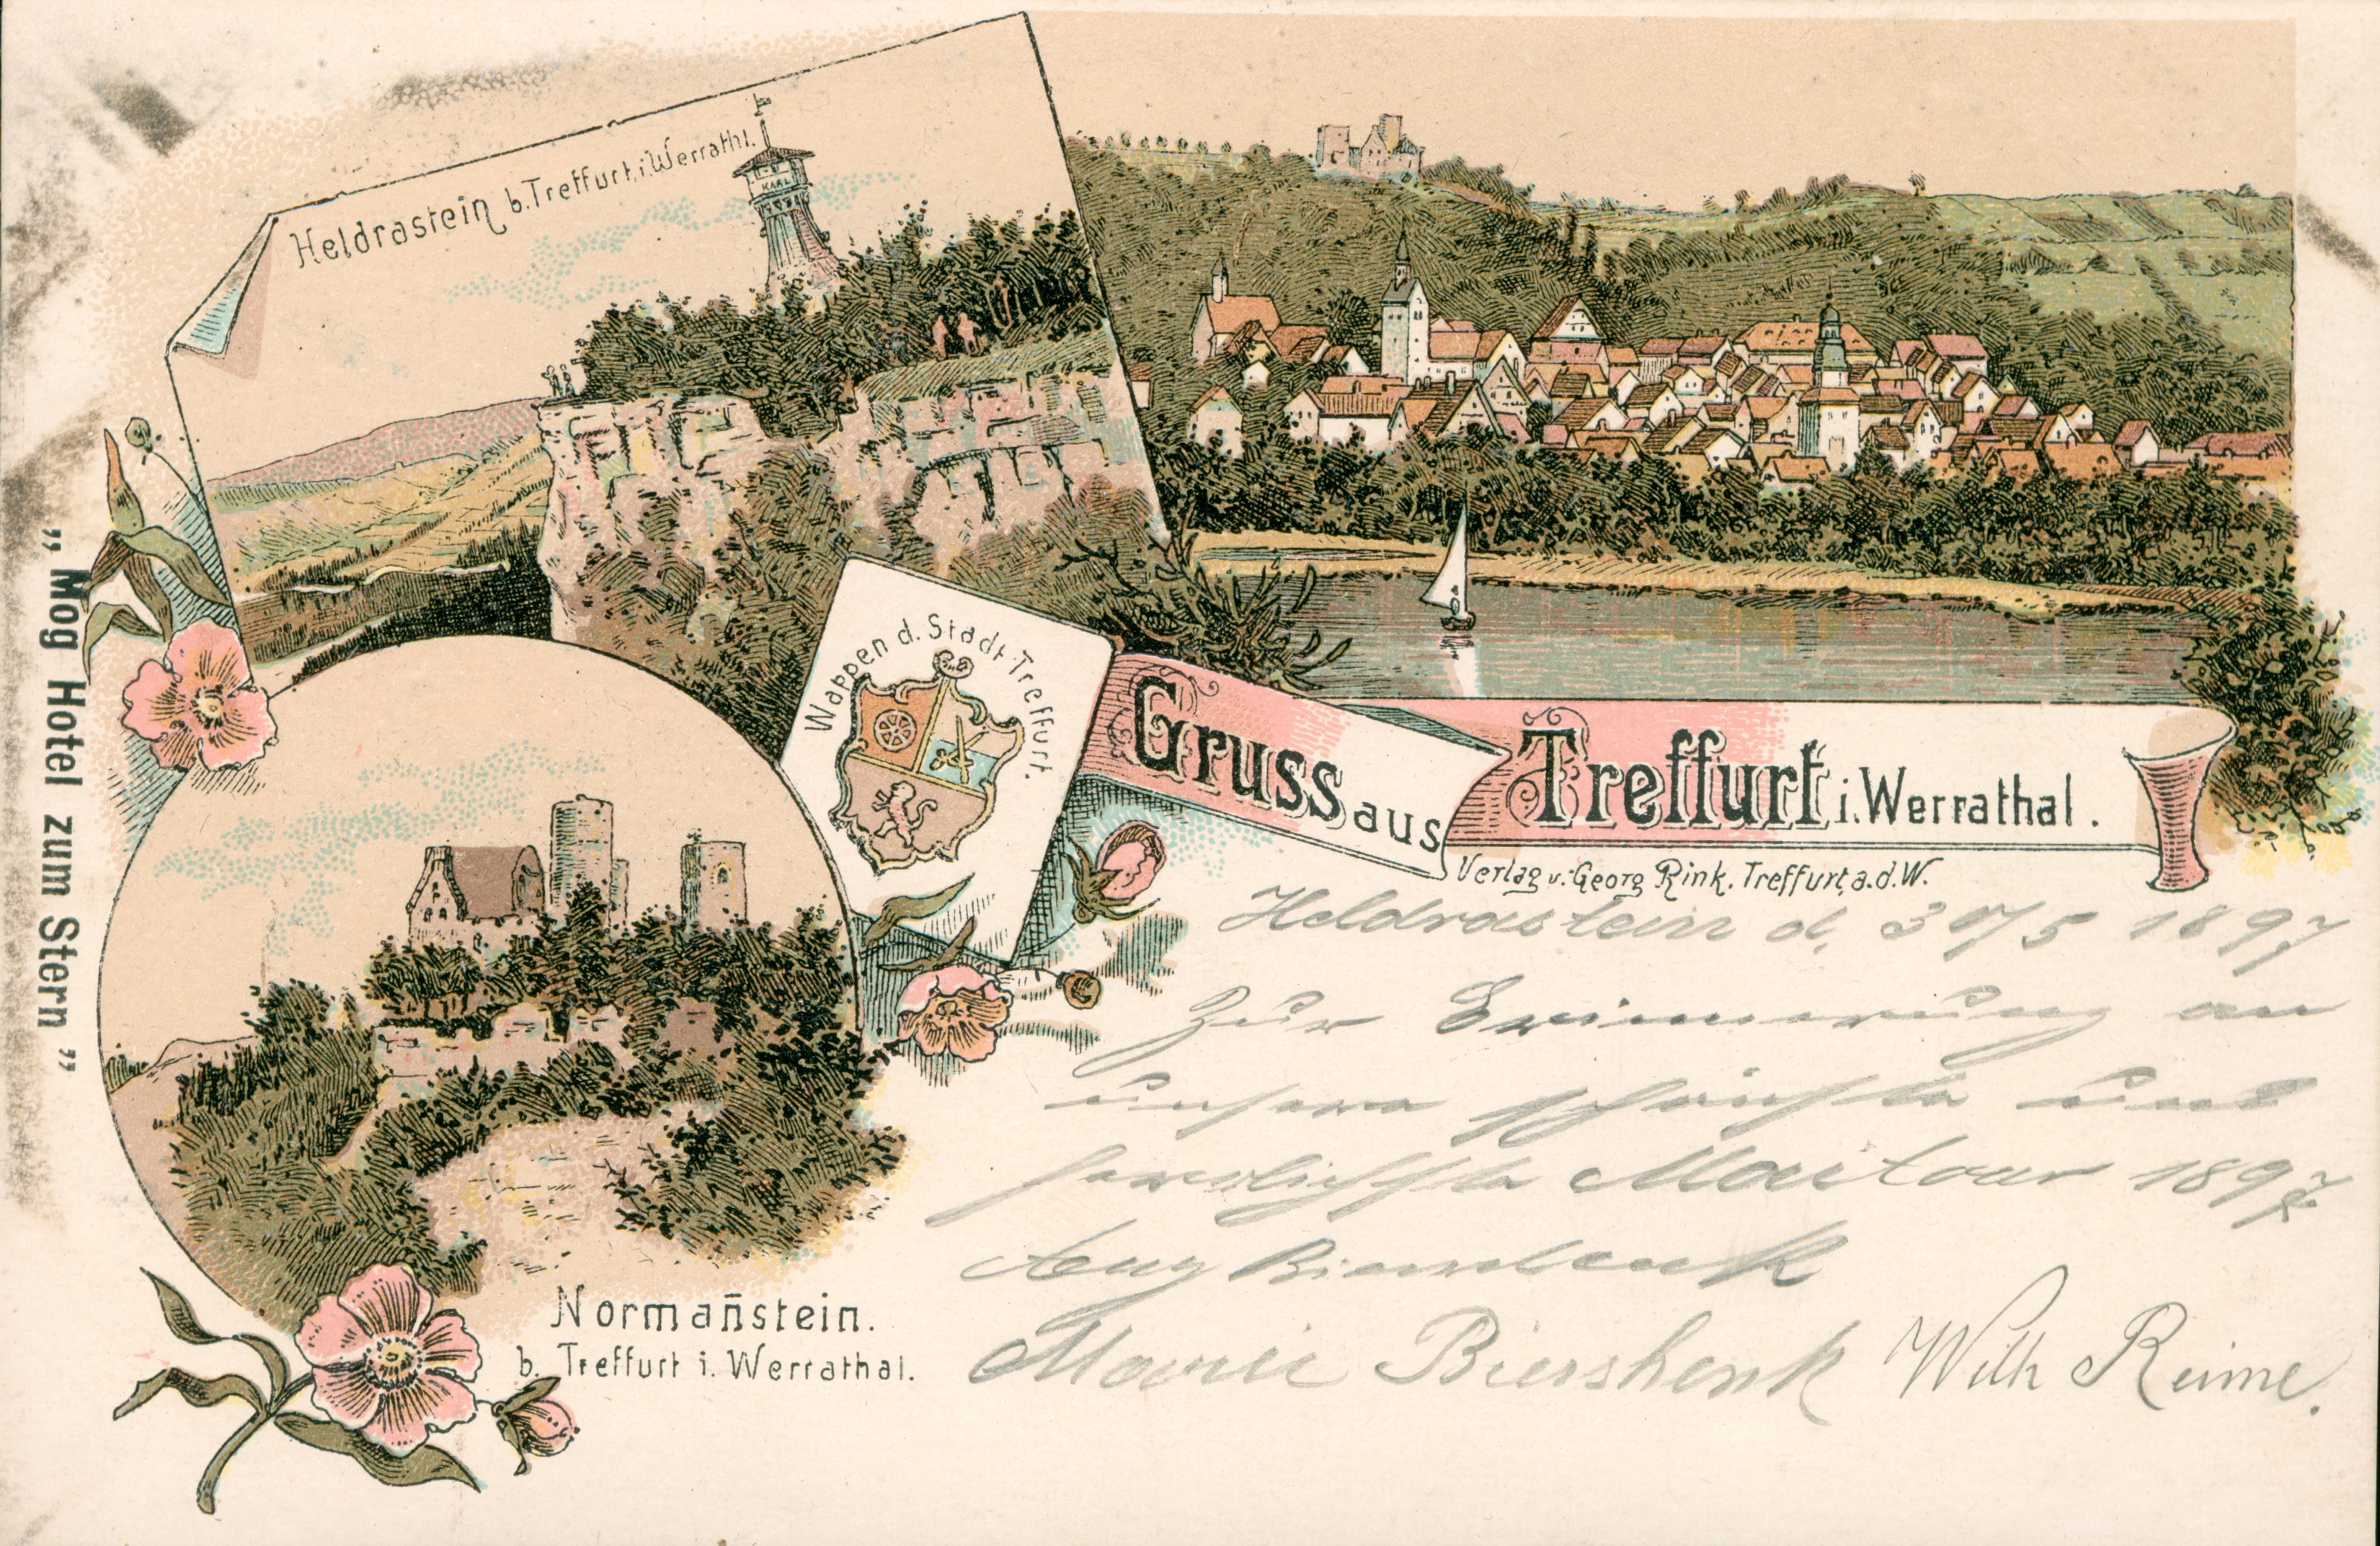 Heldrastein b. Treffurt i. Werrathl.
KARL
Wappen d. Stadt Treffurt.
Gruss aus Treffurt i. Werrathal.
Verlag v. Georg Rink, Treffurt, a. d. W.
„ Mog Hotel zum Stern "
Normañstein.
b. Treffurt i. Werrathal.
Heldrastein d. 30/5 1897
Zur Erinnerung an
unsere schönste und
herrlichste Maitour 1897
Aug
Marie Biershenk Wilh Reime.